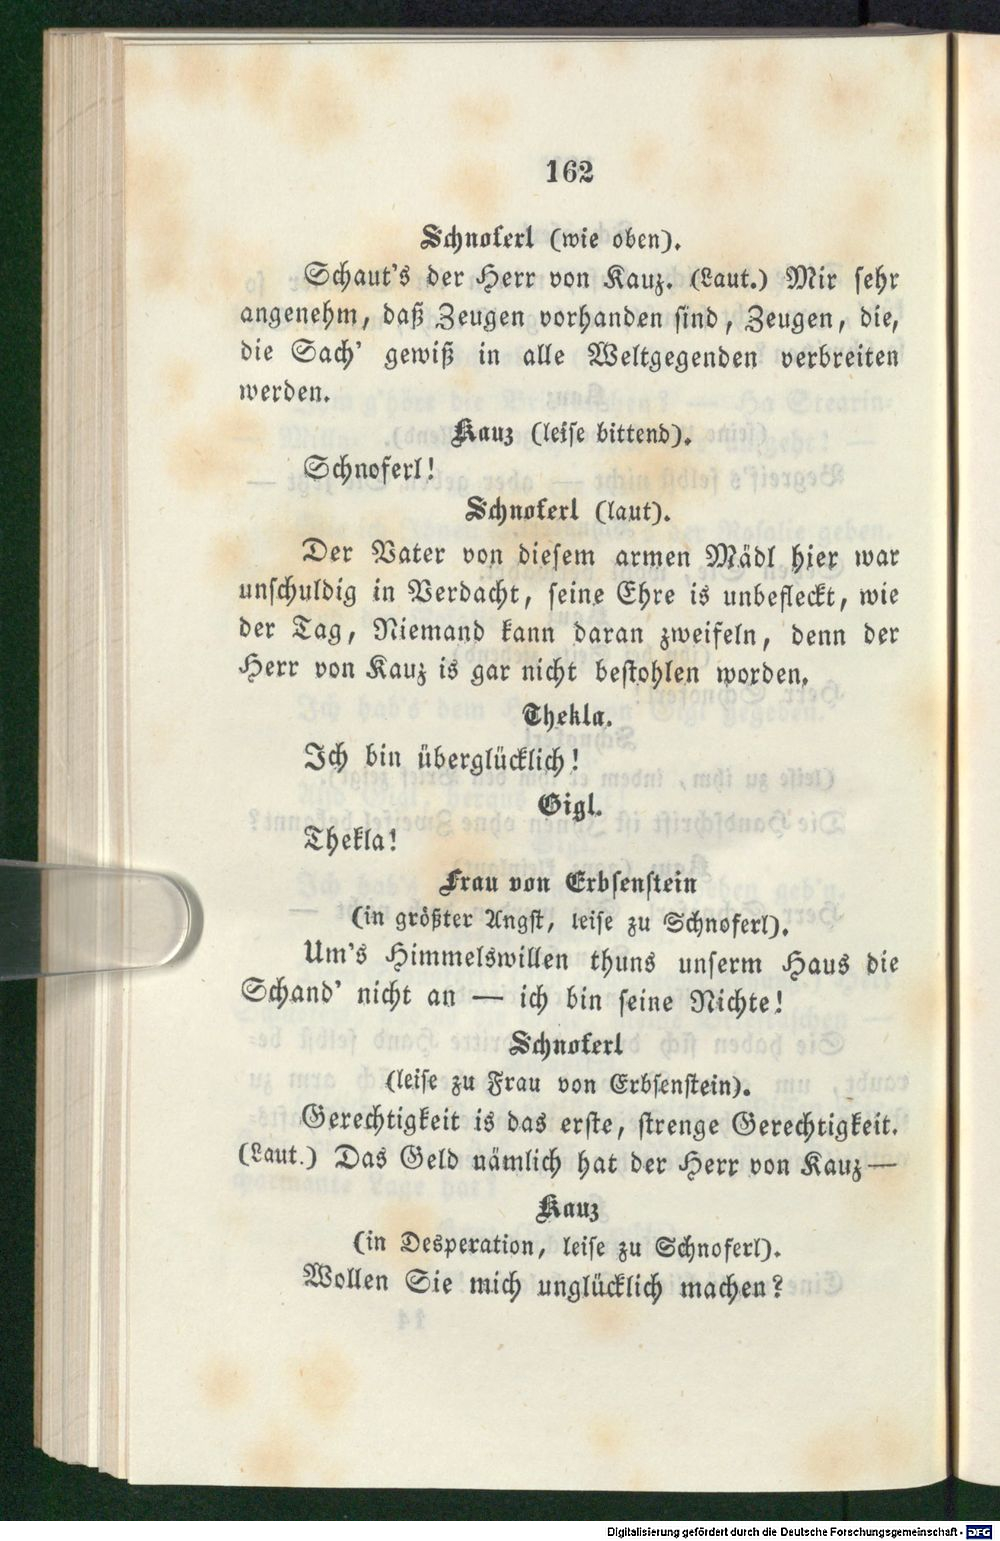 162
Schnoferl (wie oben).
Schaut's der Herr von Kauz. (Laut.) Mir sehr
angenehm, daß Zeugen vorhanden sind, Zeugen, die,
die Sach' gewiß in alle Weltgegenden verbreiten
werden.
Kauz (leise bittend).
Schnoferl!
Schnoferl (laut).
Der Vater von diesem armen Mädl hier war
unschuldig in Verdacht, seine Ehre is unbefleckt, wie
der Tag, Niemand kann daran zweifeln, denn der
Herr von Kauz is gar nicht bestohlen worden.
Thekla.
Ich bin überglücklich!
Gigl.
Thekla!
Frau von Erbsenstein
(in größter Angst, leise zu Schnoferl).
Um's Himmelswillen thuns unserm Haus die
Schand' nicht an — ich bin seine Nichte!
Schnoferl
(leise zu Frau von Erbsenstein).
Gerechtigkeit is das erste, strenge Gerechtigkeit.
(Laut.) Das Geld nämlich hat der Herr von Kauz —
Kauz
(in Desperation, leise zu Schnoferl).
Wollen Sie mich unglücklich machen?
Digitalisierung gefördert durch die Deutsche Forschungsgemeinschaft - DFG